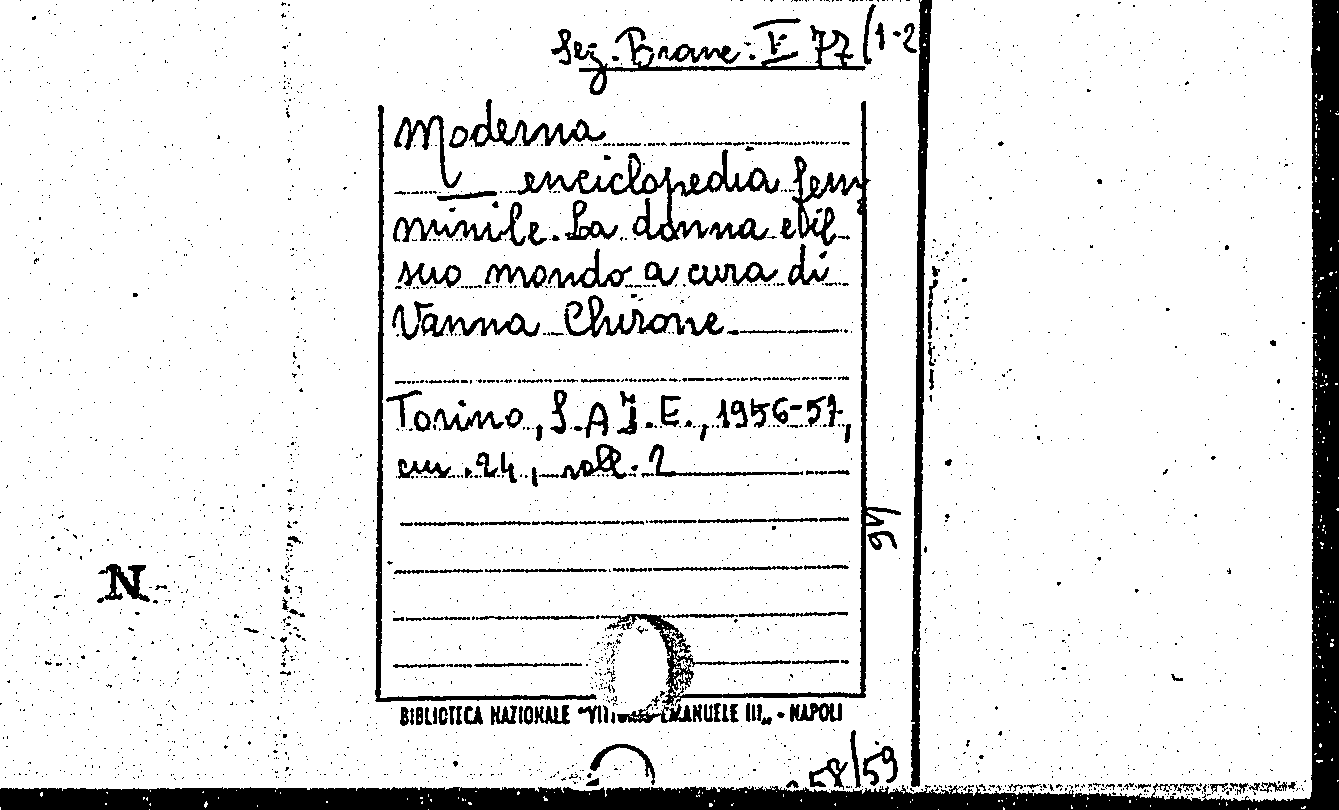 Sez. Branc. F 77/1-2
Moderna
enciclopedia fem
minile. La donna e il
suo mondo a cura di
Vanna Chirone.
Torino, S.A.I.E., 1956-57,
cm. 24, voll. 2
54
N
BIBLIOTECA NAZIONALE "VITTORIO EMANUELE III„ - NAPOLI
58/59